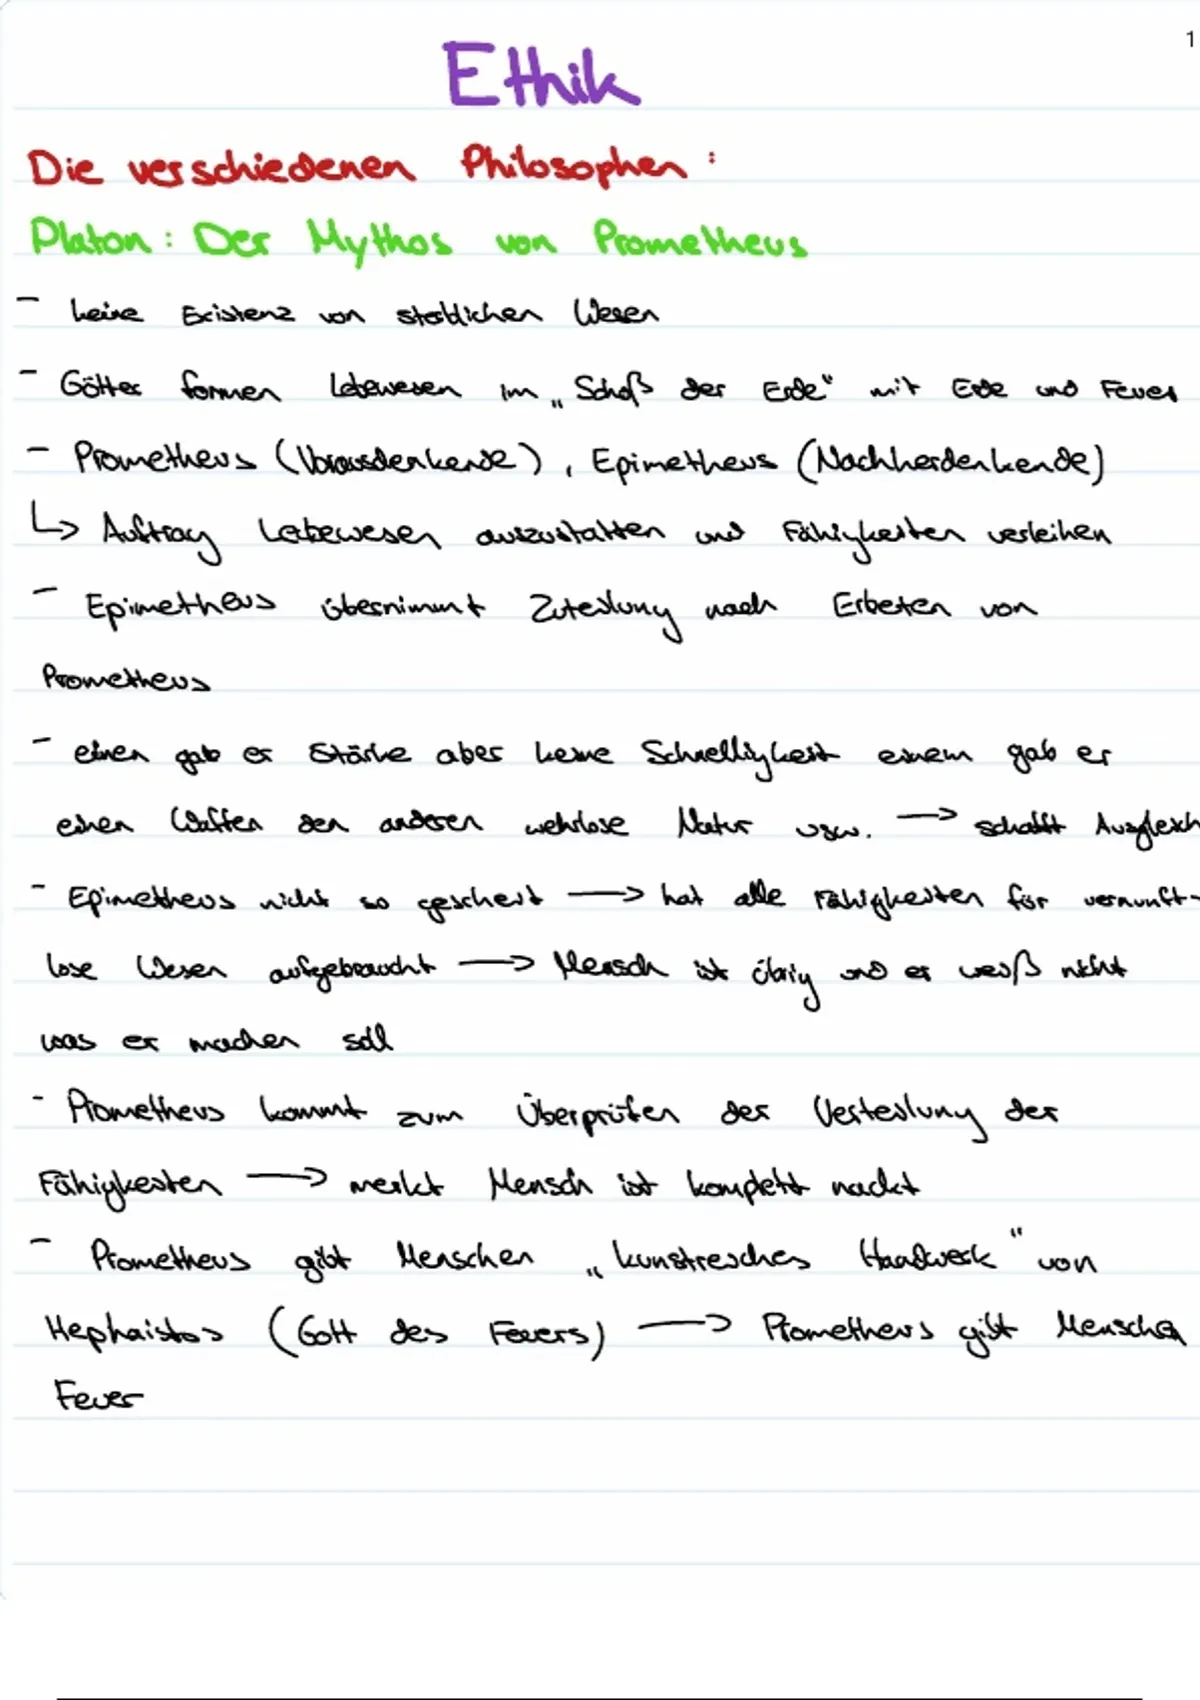 1
Ethik
Die verschiedenen Philosophen :
Platon : Der Mythos von Prometheus
- keine Existenz von sterblichen Wesen
- Götter formen Lebewesen im „Schoß der Erde“ mit Erde und Feuer
- Prometheus (Vorausdenkende), Epimetheus (Nachherdenkende)
↳ Auftrag Lebewesen auszustatten und Fähigkeiten verleihen
- Epimetheus übernimmt Zuteilung nach Erbeten von
Prometheus
- einen gab er Stärke aber keine Schnelligkeit einem gab er
einen Waffen den anderen wehrlose Natur usw. → schafft Ausgleich
- Epimetheus nicht so gescheit → hat alle Fähigkeiten für vernunft-
lose Wesen aufgebraucht → Mensch ist übrig und er weiß nicht
was er machen soll
- Prometheus kommt zum Überprüfen der Verteilung der
Fähigkeiten → merkt Mensch ist komplett nackt
- Prometheus gibt Menschen „kunstreiches Handwerk“ von
Hephaistos (Gott des Feuers) → Prometheus gibt Menschen
Feuer